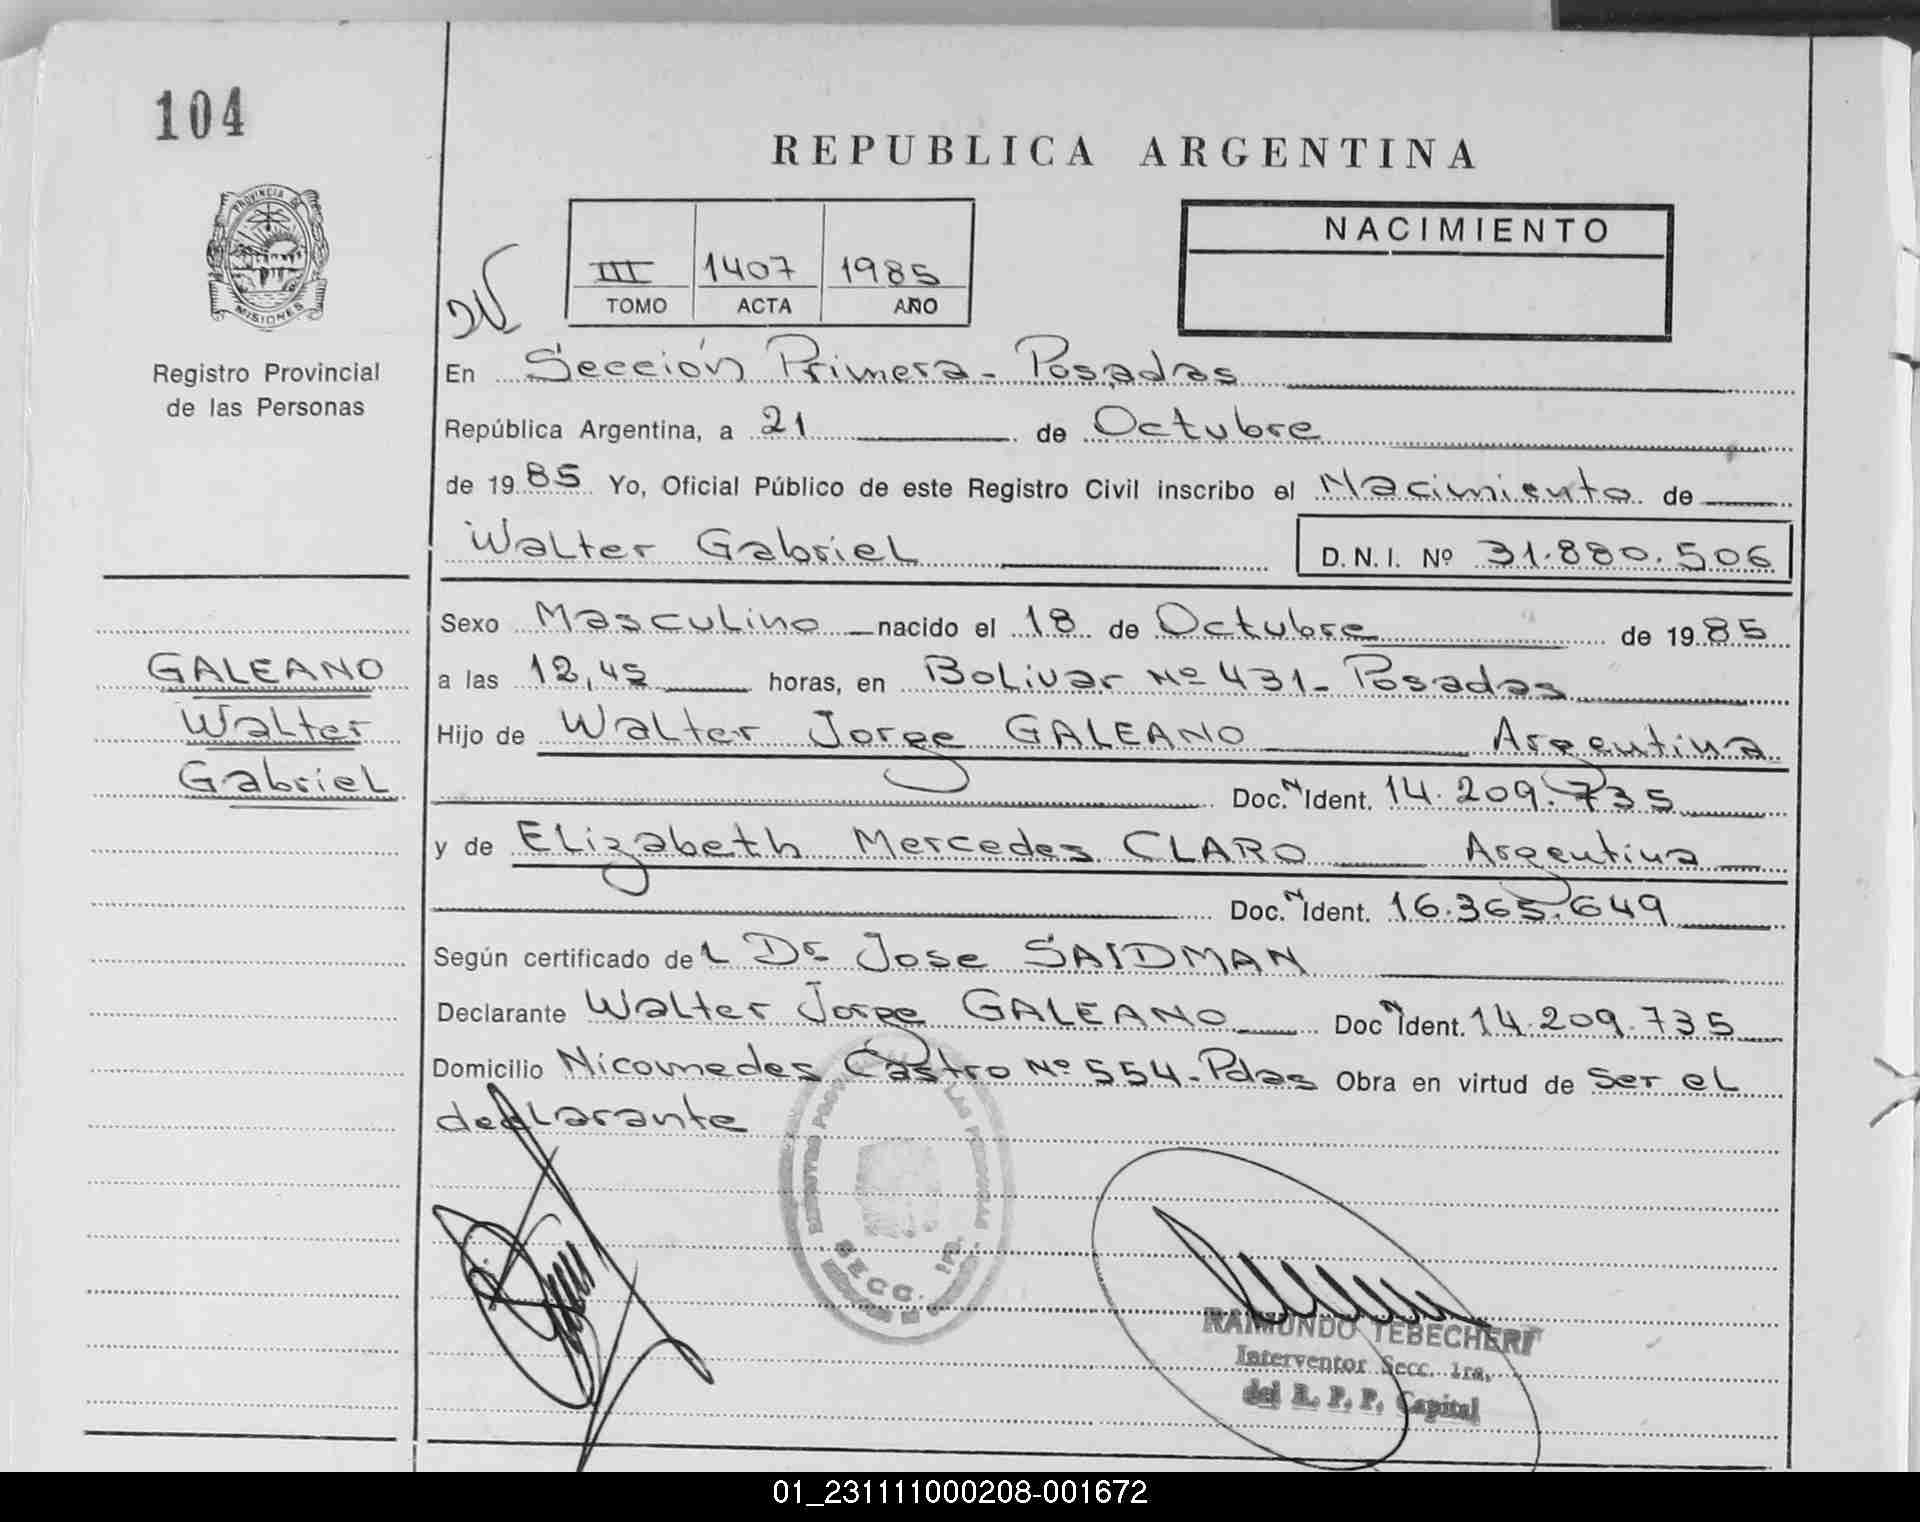 104
REPUBLICA ARGENTINA
PROVINCIA DE
MISIONES
Registro Provincial
de las Personas
III 1407 1985
TOMO ACTA AÑO
NACIMIENTO
En Sección Primera - Posadas
República Argentina, a 21 de Octubre
de 1985 Yo, Oficial Público de este Registro Civil inscribo el Nacimiento de
Walter Gabriel D.N.I. Nº 31.880.506
Sexo Masculino nacido el 18 de Octubre de 1985
a las 12,45 horas, en Bolivar Nº 431 - Posadas
Hijo de Walter Jorge GALEANO Argentina
Doc. N Ident. 14.209.735
y de Elizabeth Mercedes CLARO Argentina
Doc. N Ident. 16.365.649
Según certificado del Dr Jose SAIDMAN
Declarante Walter Jorge GALEANO Doc N Ident. 14.209.735
Domicilio Nicomedes Castro Nº 554 - Pdas Obra en virtud de ser el
declarante
GALEANO
Walter
Gabriel
SECC. 1RA.
RAIMUNDO TEBECHERI
Interventor Secc. 1ra.
del R. P. P. Capital
01_231111000208-001672